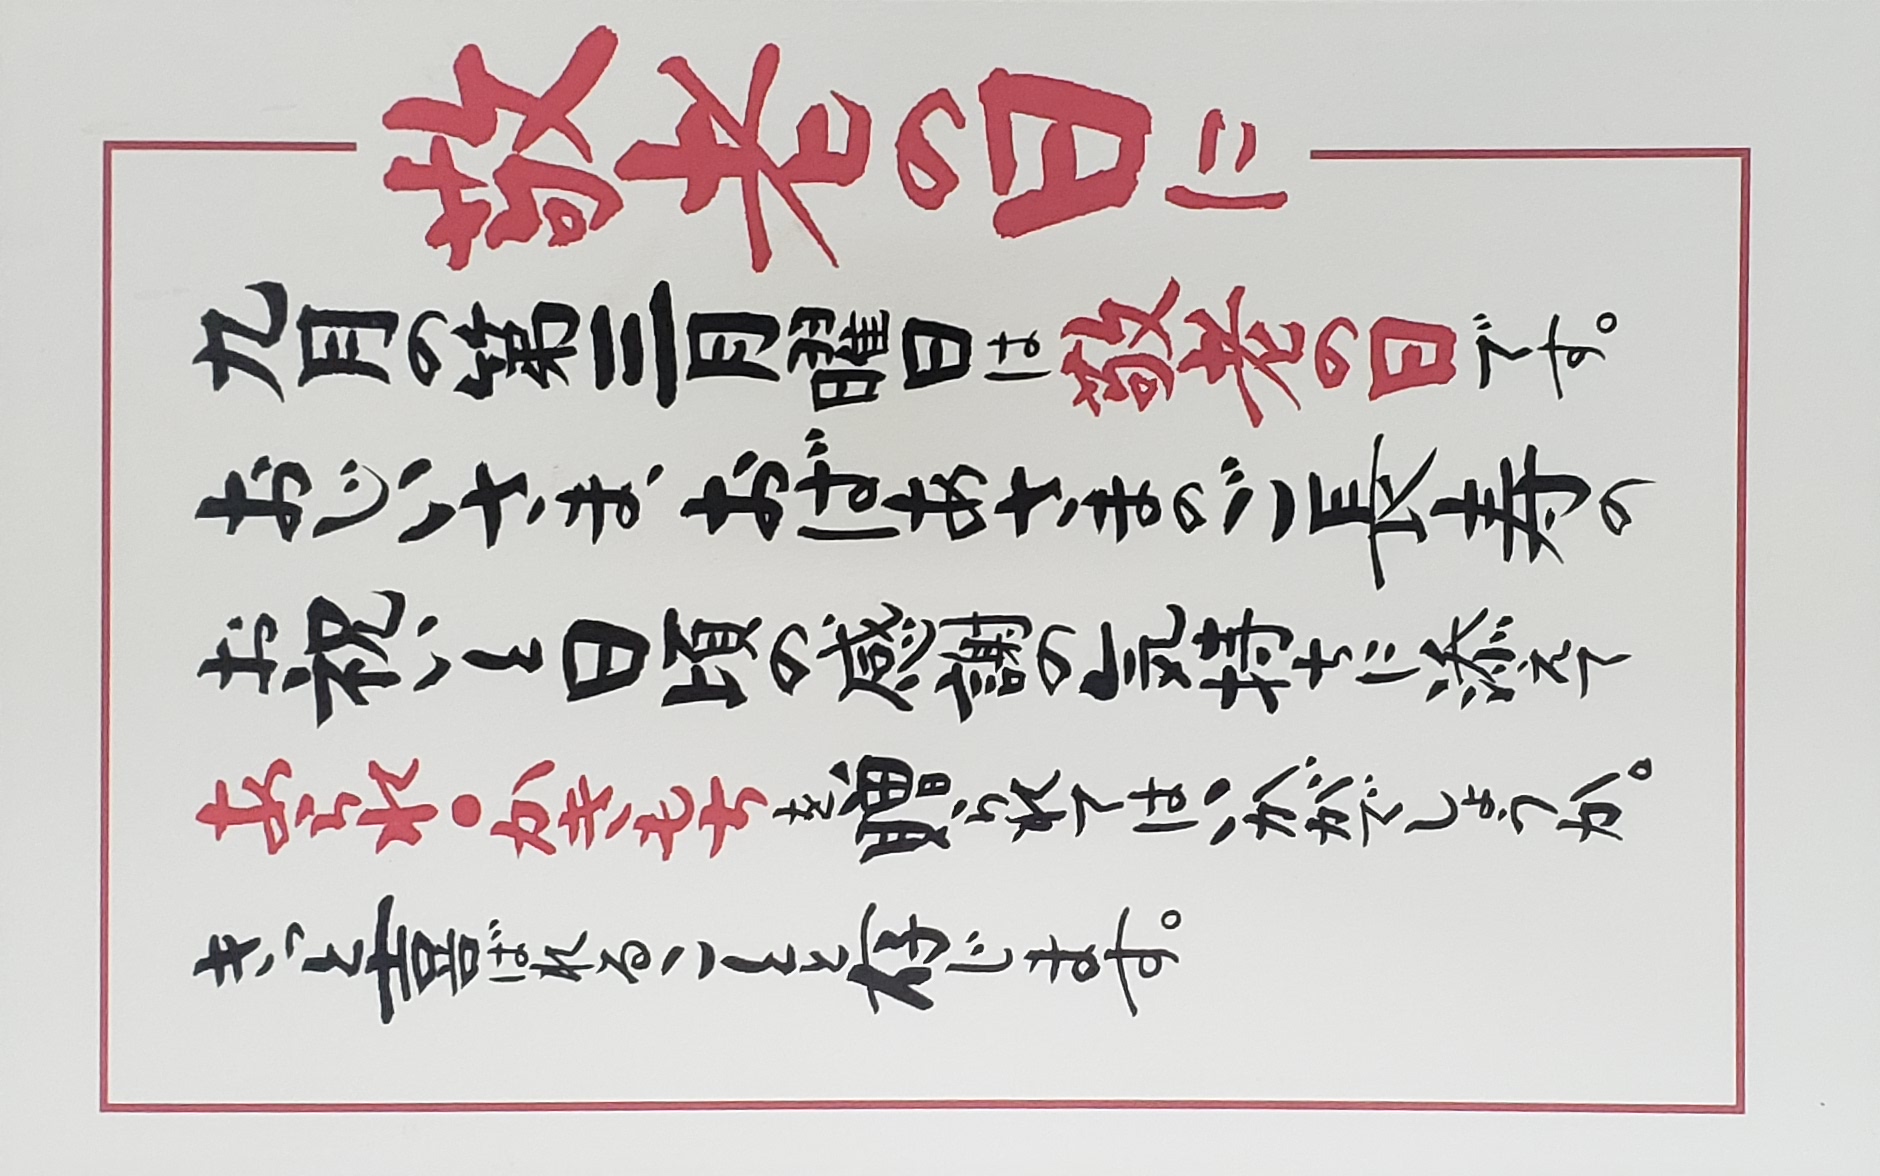 敬老の日に
九月の第三月曜日は敬老の日です。
おじいさま、おばあさまのご長寿の
お祝いと日頃の感謝の気持ちに添えて
あられ・かきもちを贈られてはいかがでしょうか。
きっと喜ばれることと存じます。